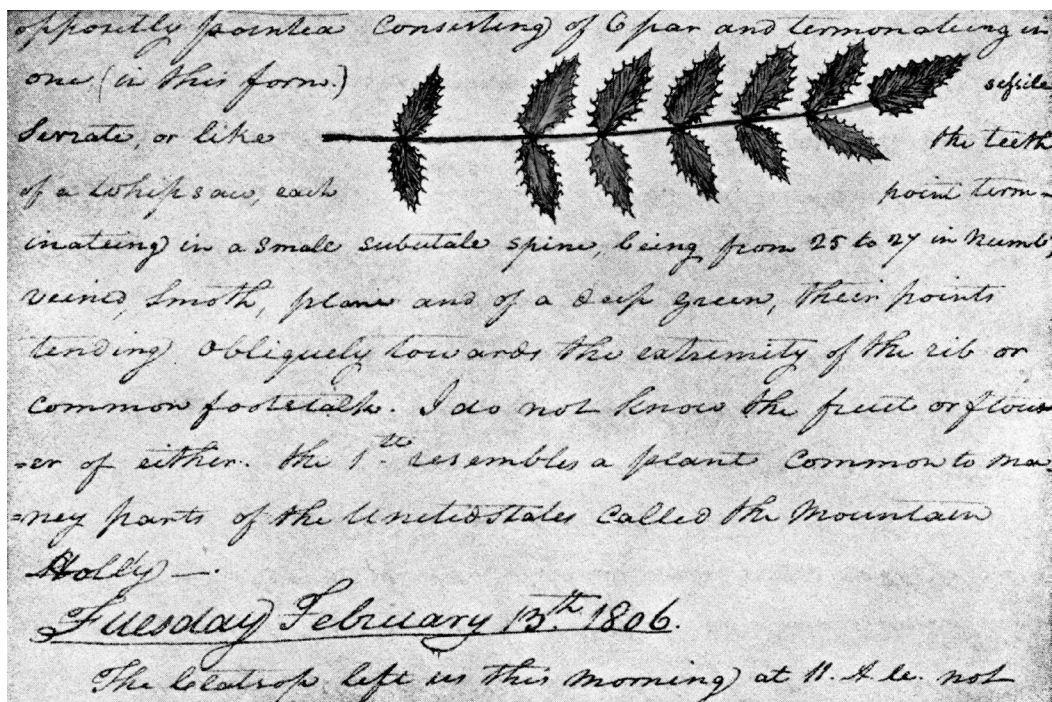 oppositly pointed Consisting of 6 par and termonateing in
one (in this form.) sessile
Serrate, or like the teeth
of a whipsaw, each point term-
inateing in a small subulate spine, being from 25 to 27 in Numb,
veined, Smoth, plane and of a deep green, their points
tending obliquely towards the extremity of the rib or
common footstalk. I do not know the fruit or flow
=er of either. the 1st. resembles a plant Common to ma=
=ney parts of the United States Called the Mountain
Holly —.
Tuesday February 13th. 1806.
The Clatsop left us this morning at 11. A.M. not